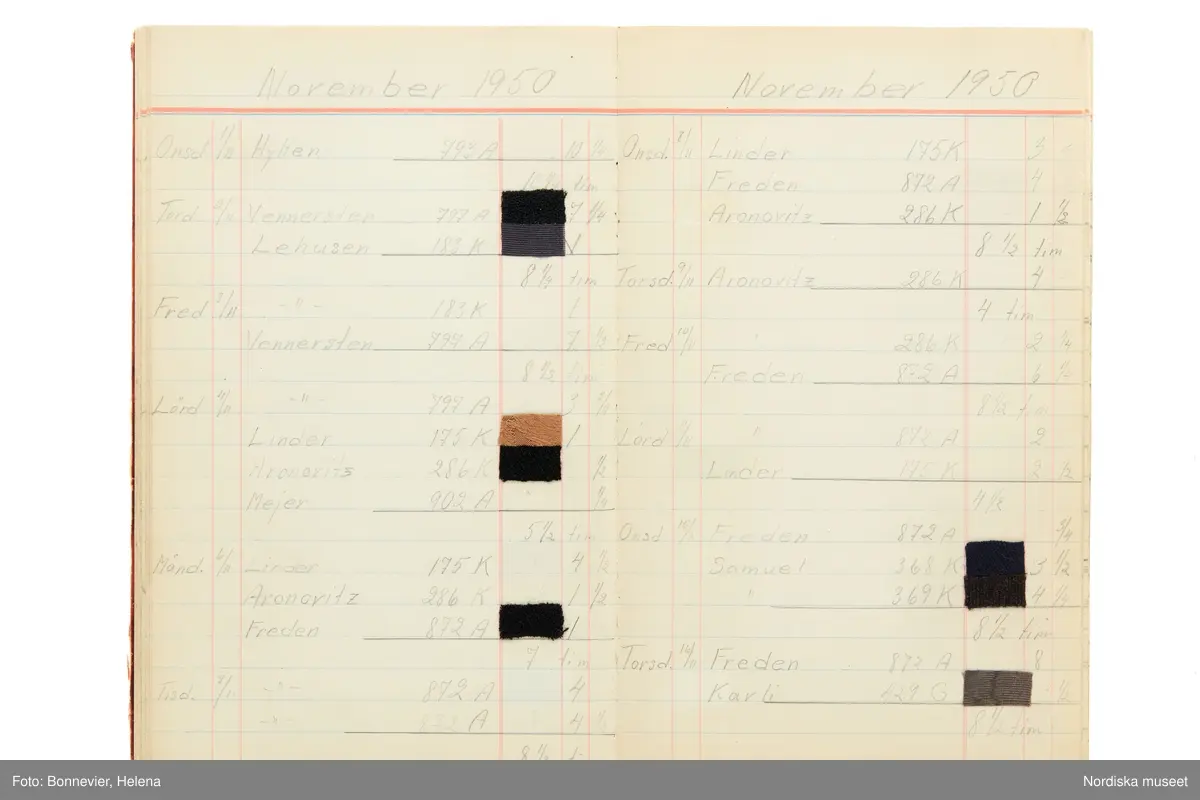 November 1950
Onsd 1/11 Hylten 797 A 10 1/4
tim
Tord 2/11 Vennersten 797 A 7 1/4
Lehusen 183 K 1
8 1/2 tim
Fred 3/11 - " - 183 K 1
Vennersten 797 A 7 1/2
8 1/2 tim
Lörd 4/11 - " - 797 A 3
Linder 175 K 1
Aronovits 286 K 1/2
Mejer 902 A
5 1/2 tim
Månd. 6/11 Linder 175 K 4 1/2
Aronovitz 286 K 1 1/2
Freden 872 A 1
7 tim
Tisd. 7/11 - " - 872 A 4
- " - 872 A 4 1/2
8 1/2
November 1950
Onsd. 8/11 Linder 175 K 3
Freden 872 A 4
Aronovitz 286 K 1 1/2
8 1/2 tim
Torsd. 9/11 Aronovitz 286 K 4
4 tim
Fred 10/11 " 286 K 2 1/4
Freden 872 A 6
8 1/2 tim
Lörd " 872 A 2
Linder 175 K 2 1/2
4 1/2
Onsd Freden 872 A 3/4
Samuel 368 K 3 1/2
" 369 K 4
8 1/2 tim
Torsd. Freden 872 A 8
Karli 429 G 1/2
8 1/2 tim
Foto: Bonnevier, Helena
Nordiska museet